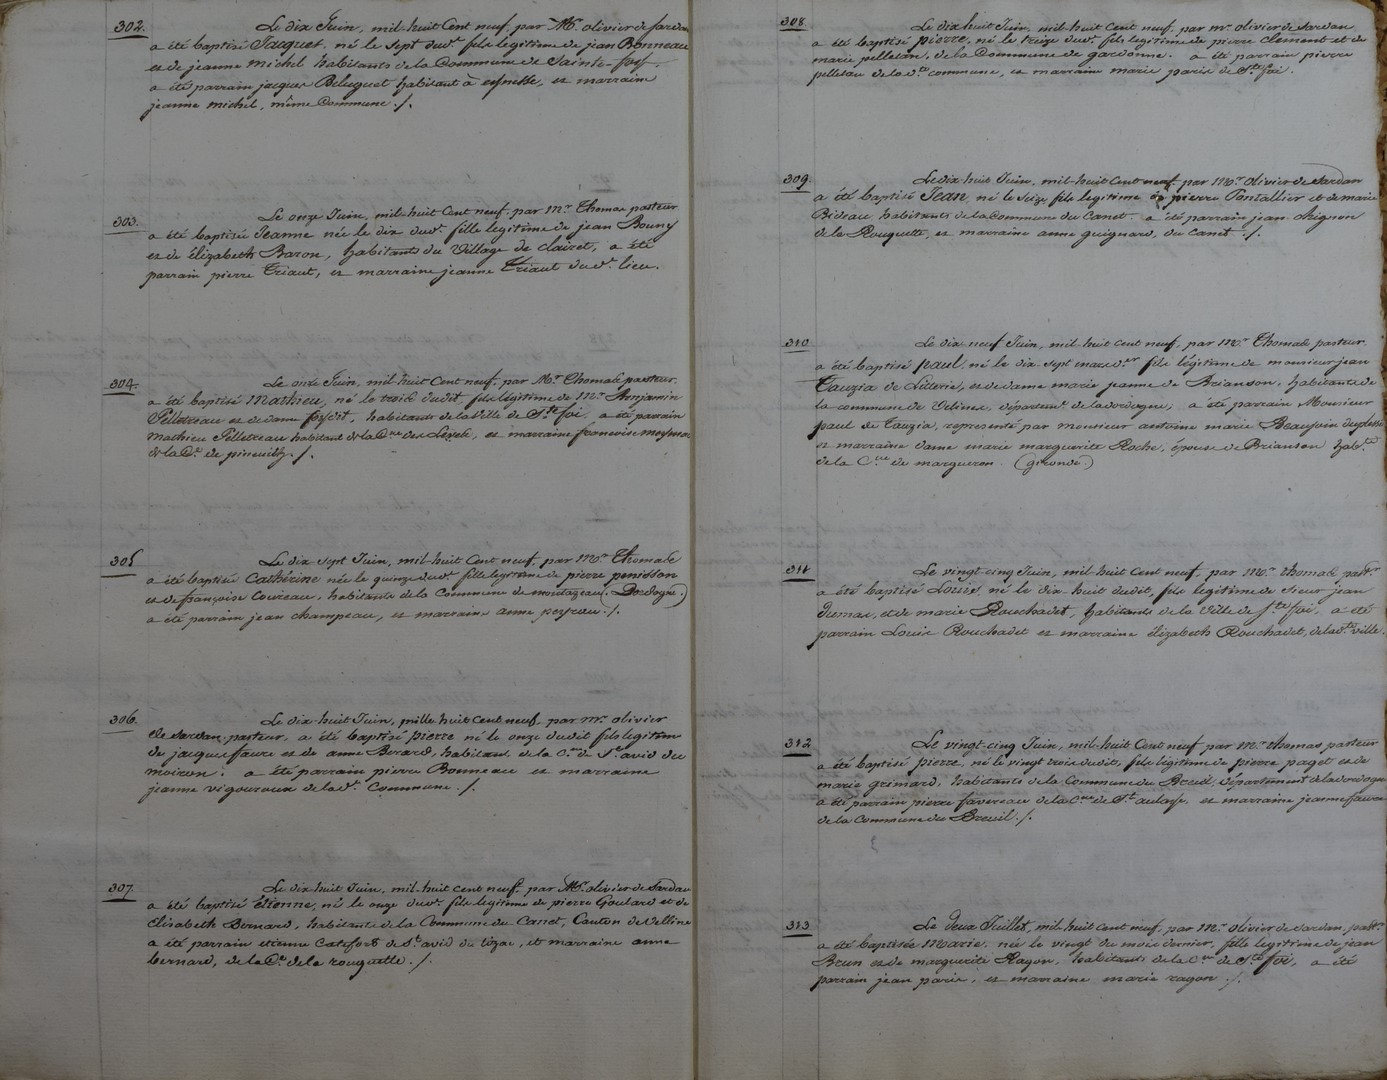 302.
Le dix Juin, mil huit Cent neuf, par Mr. olivier de Sardan
a été baptisé Jacques, né le sept dudt. fils légitime de jean Bonneau
et de jeanne michel habitants de la Commune de Sainte-foy.
a été parrain jacques habitant à et marraine
jeanne michel, même Commune ./.
303.
Le onze Juin, mil-huit Cent neuf, par mr. Thomas pasteur
a été baptisée Jeanne née le dix dudt. fille legitime de jean Bouny
et de Élizabeth Baron, habitants du Village de clairet, a été
parrain pierre Triaut, et marraine jeanne Triaut dudt. lieu.
304.
Le onze Juin, mil-huit Cent neuf, par Mr. Thomas pasteur
a été baptisé Mathieu, né le trois dudit, fils légitime de Mr. Benjamin
Pelletreau et de dame habitants de la Ville de Ste foi, a été parrain
mathieu Pelletreau habitant de la Cne des Lèves, et marraine francoise
de la Ce. de pineuilh ./.
305
Le dix sept Juin, mil-huit Cent neuf, par Mr. Thomas
a été baptisée Cathérine née le quinze dudt. fille legitime de pierre penisson
et de françoise Coureau, habitants de la Commune de montazeau (Dordogne)
a été parrain jean champeau, et marraine anne ./.
306.
Le dix-huit Juin, mille huit Cent neuf, par mr. olivier
de Sardan, pasteur, a été baptisé pierre né le onze dudit fils legitime
de jacques faure et de anne Berard, habitans de la Cne de St. avid du
moiron. a été parrain pierre Bonneau et marraine
jeanne vigouroux de la dt. Commune ./.
307.
Le dix huit Juin, mil-huit cent neuf, par Mr. olivier de Sardan
a été baptisé étienne, né le onze dudt. fils legitime de pierre Goulard et de
Elisabeth Bernard, habitants de la Commune du Canet, Canton de Velline
a été parrain etienne de St. avid du tizac, et marraine anne
bernard, de la Ce. de la rouquette ./.
308.
Le dix huit Juin, mil huit cent neuf, par mr. olivier de Sardan
a été baptisé pierre, né le treize dudt. fils legitime de pierre Clement et de
marie pelletan, de la Commune de gardonne. a été parrain pierre
pelletan de la de. commune, et marraine marie parié de Ste foi.
309.
Le dix huit Juin, mil-huit Cent neuf, par Mr. Olivier de Sardan
a été baptisé Jean, né le Seize fils legitime de pierre Pontallier et de marie
Bideau, habitants de la Commune du Canet. a été parrain jean
de la Rouquette, et marraine anne guignard, du Canet ./.
310
Le dix neuf Juin, mil huit cent neuf, par Mr. Thomas pasteur
a été baptisé paul, né le dix sept fils légitime de monsieur jean
Tauzia de Litterie, et de dame marie jeanne de Brianson, habitants de
la commune de Velines, départemt. de la dordogne, a été parrain Monsieur
paul de Tauzia, représenté par monsieur antoine marie Beaupoin
et marraine dame marie marguerite Roche, épouse de Brianson habte.
de la Cne de margueron (gironde)
311
Le vingt-cinq Juin, mil huit Cent neuf, par Mr. thomas pastr.
a été baptisé Louis, né le dix huit dudit, fils legitime de Sieur jean
dumas, et de marie Rouchadet, habitants de la ville de Ste foi, a été
parrain Louis Rouchadet et marraine élizabeth Rouchadet, de la dte. ville.
312
Le vingt-cinq Juin, mil huit Cent neuf par Mr. thomas pasteur
a été baptisé pierre, né le vingt trois dudit, fils légitime de pierre paget et de
marie grimard, habitants de la Commune du Breuil, département de la dordogne
a été parrain pierre favereau de la Cne. de St. aulaye, et marraine jeanne faure
de la Commune du Breuil ./.
313
Le deux Juillet, mil huit cent neuf, par Mr. olivier de Sardan, pastr.
a été baptisée Marie, née le vingt du mois dernier, fille legitime de jean
Brun et de marguerite Rayon, habitants de la Cne. de Ste. foi, a été
parrain jean parie, et marraine marie rayon ./.